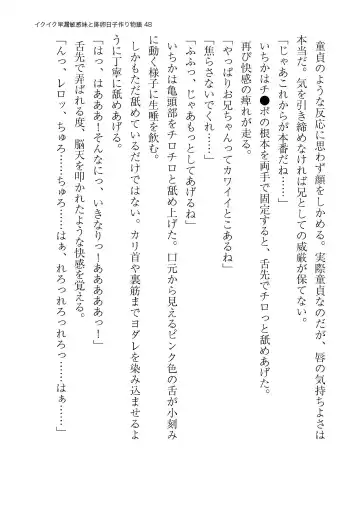 イクイク早漏敏感妹と排卵日子作り物語 48
童貞のような反応に思わず顔をしかめる。実際童貞なのだが、唇の気持ちよさは
本当だ。気を引き締めなければ兄としての威厳が保てない。
「じゃあこれからが本番だね……」
いちかはチ●ポの根本を両手で固定すると、舌先でチロっと舐めあげた。
再び快感の痺れが走る。
「やっぱりお兄ちゃんってカワイイとこあるね」
「焦らさないでくれ……」
「ふふっ、じゃあもっとしてあげるね」
いちかは亀頭部をチロチロと舐め上げた。口元から見えるピンク色の舌が小刻み
に動く様子に生唾を飲む。
しかもただ舐めているだけではない。カリ首や裏筋までヨダレを染み込ませるよ
うに丁寧に舐めあげる。
「はっ、はあああ！そんなにっ、いきなりっ！あああああっ！」
舌先で弄ばれる度、脳天を叩かれたような快感を覚える。
「んっ、レロッ、ちゅろ……ちゅろ……はぁ、れろっれろっれろっ……はぁ」